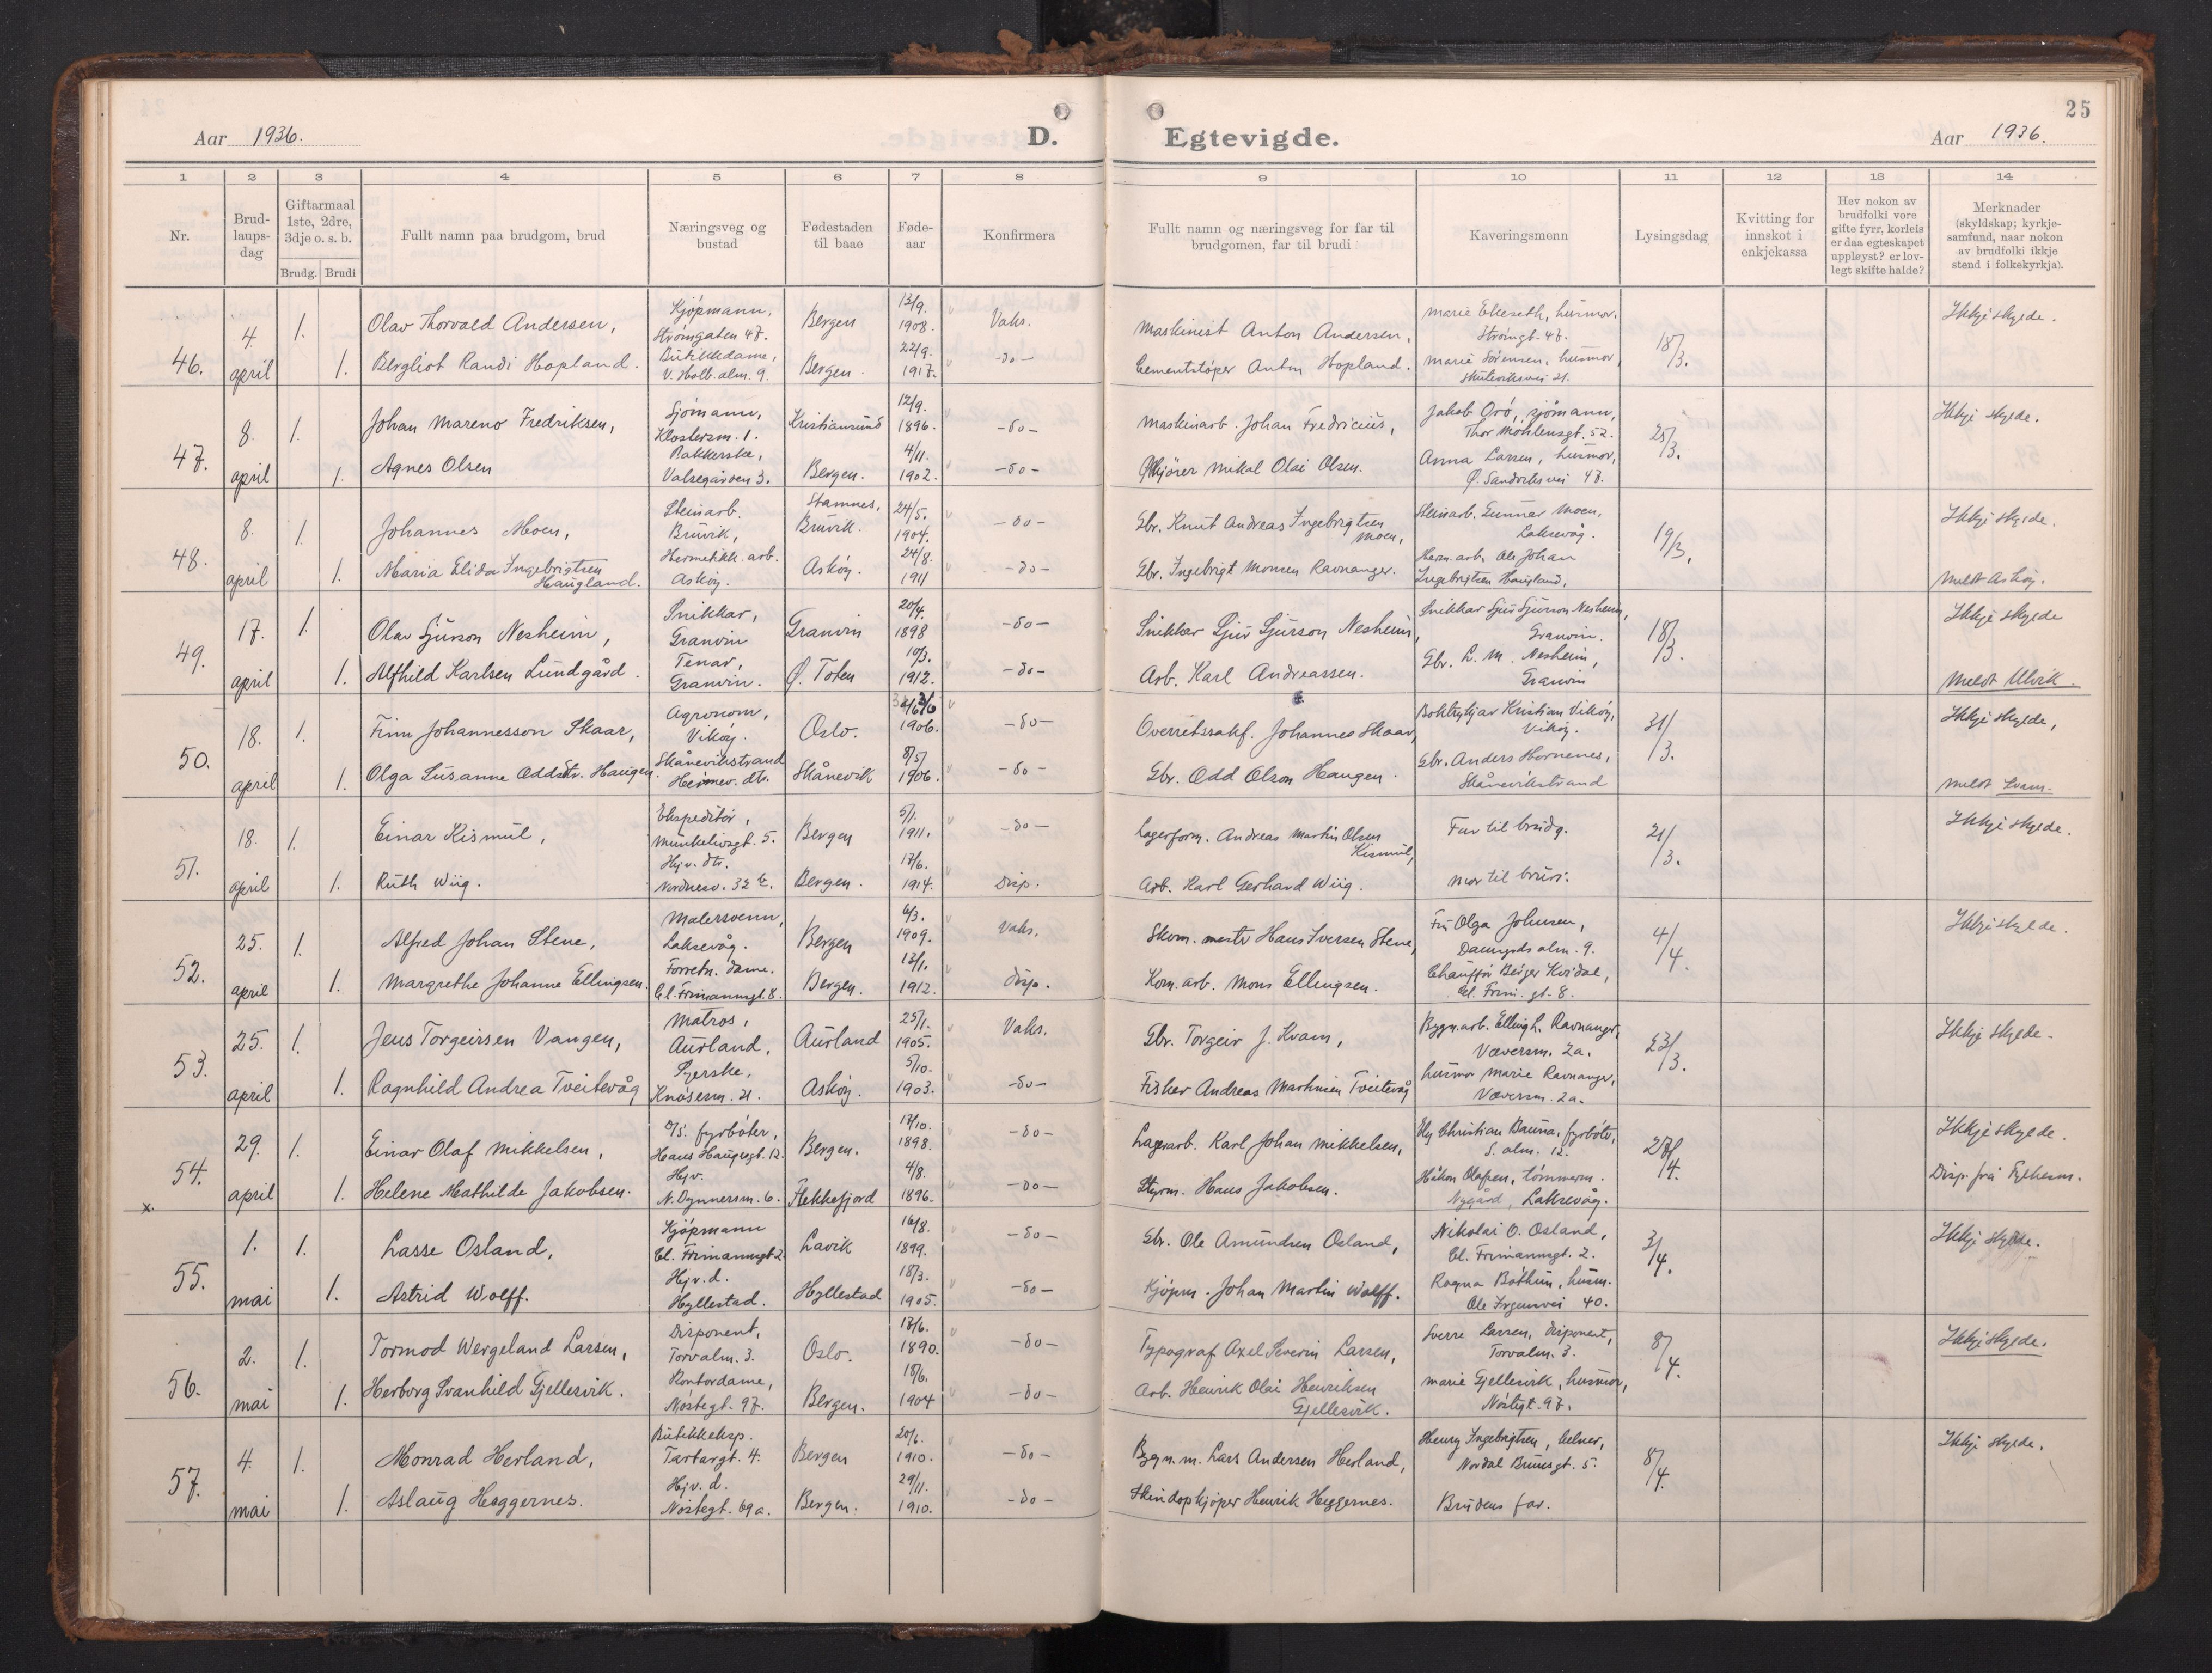 25
Aar 1936. D. Egtevigde. Aar 1936.
1 2 3 4 5 6 7 8 9 10 11 12 13 14
Nr.
Brud-
laups-
dag
Giftarmaal
1ste, 2dre,
3dje o. s. b.
Brudg. Brudi
Fullt namn paa brudgom, brud
Næringsveg og
bustad
Fødestaden
til baae
Føde-
aar
Konfirmera
Fullt namn og næringsveg for far til
brudgomen, far til brudi
Kaveringsmenn
Lysingsdag
Kvitting for
innskot i
enkjekassa
Hev nokon av
brudfolki vore
gifte fyrr, korleis
er daa egteskapet
uppløyst? er lov-
legt skifte halde?
Merknader
(skyldskap; kyrkje-
samfund, naar nokon
av brudfolki ikkje
stend i folkekyrkja).
46.
4. april
1. Olav Thorvald Andersen,
Kjøpmann,
Strømgaten 47.
Bergen
13/9.
1908.
Vaks.
Maskinist Anton Andersen,
Marie Ekeseth, husmor.
Strømgt. 47.
18/3.
Ikkje skylde.
1. Bergliot Randi Hopland.
Butikkdame,
V. Holb. alm. 9.
Bergen.
22/9.
1917.
-do-
Cementstøper Anton Hopland.
Marie Sørensen, husmor,
Skuteviksvei 21.
47.
8. april
1. Johan Mareno Fredriksen,
Sjømann,
Klostersm. 1.
Kristiansund
12/9.
1896.
-do-
Maskinarb. Johan Fredricius,
Jakob Orø, sjømann,
Thor Møhlensgt. 52.
25/3.
Ikkje skylde.
1. Agnes Olsen
Pakkerske,
Valsegården 3.
Bergen.
4/11.
1902.
-do-
Mikal Olai Olsen.
Anna Larsen, husmor,
Ø. Sandviksvei 47.
48.
8. april
1. Johannes Moen,
Steinarb.
Bruvik,
Stamnes,
Bruvik.
24/5.
1904.
-do-
Gbr. Knut Andreas Ingebrigtsen
Moen,
Steinarb. Gunnar Moen,
Laksevåg.
19/3.
Ikkje skylde.
1. Maria Elida Ingebrigtsen
Haugland.
Hermetikk. arb.
Askøy.
Askøy.
24/8.
1911
-do-
Gbr. Ingebrigt Monsen Ravnanger.
Herm. arb. Ole Johan
Ingebrigtsen Haugland,
Meldt Askøy.
49.
17. april
1. Olav Sjurson Nesheim,
Snikkar,
Granvin
Granvin
20/4.
1898
-do-
Snikkar Sjur Sjurson Nesheim,
Snikkar Sjur Sjurson Nesheim,
Granvin.
18/3.
Ikkje skylde
1. Alfhild Karlsen Lundgård.
Tenar,
Granvin.
Ø. Toten
10/3.
1912.
-do-
Arb. Karl Andreassen.
Gbr. L. M. Nesheim,
Granvin
Meldt Ulvik.
50.
18. april
1. Finn Johannesson Skaar,
Agronom,
Vikøy.
Oslo.
1906.
-do-
Overrettssakf. Johannes Skaar,
Kristian Vikøy,
Vikøy.
31/3.
Ikkje skylde,
1. Olga Susanne Oddsdtr. Haugen.
Skånevikstrand
Heimev. dtr.
Skånevik
8/5
1906.
-do-
Gbr. Odd Olson Haugen.
Gbr. Anders Hornenes,
Skånevikstrand
Meldt Kvam.
51.
18. april
1. Einar Kismul,
Ekspeditør,
Munkelivsgt. 5.
Bergen
5/1.
1911.
-do-
Lagerform. Andreas Martin Olsen
Kismul,
Far til brudg.
21/3.
Ikkje skylde.
1. Ruth Wiig.
Hjv. dtr.
Nordnesv. 32 b.
Bergen.
17/6.
1914.
Disp.
Arb. Karl Gerhard Wiig.
Mor til brudi.
52.
25. april
1. Alfred Johan Stene,
Malersvenn,
Laksevåg.
Bergen
6/3.
1909.
Vaks.
Skom. mester Hans Iversen Stene,
Fru Olga Johnsen,
Damgårds alm. 9.
4/4.
Ikkje skylde.
1. Margrethe Johanne Ellingsen.
Forretn. dame.
Cl. Frimannsgt. 8.
Bergen.
13/1.
1912.
Disp.
Kom. arb. Mons Ellingsen.
Chauffør Birger Kvidal,
Cl. Frim. gt. 8.
53.
25. april
1. Jens Torgeirsen Vangen,
Matros,
Aurland,
Aurland
25/1.
1905.
Vaks.
Gbr. Torgeir J. Kvam,
Bygn. arb. Elling L. Ravnanger,
Væversm. 2a.
23/3.
Ikkje skylde.
1. Ragnhild Andrea Tveitevåg
Syerske,
Knøsesm. 21.
Askøy.
5/10.
1903.
-do-
Fisker Andreas Martinsen Tveitevåg
husmor Marie Ravnanger,
Væversm. 2a.
54.
x.
29. april
1. Einar Olaf Mikkelsen,
fyrbøter,
Hans Haugesgt. 12.
Bergen.
17/10.
1898.
-do-
Lagerarb. Karl Johan Mikkelsen,
Christian Bruna, fyrbøter,
S. alm. 12.
27/4.
Ikkje skylde.
1. Helene Mathilde Jakobsen.
Hjv.
N. Dynnersm. 6.
Flekkefjord
4/8.
1896.
-do-
Styrm. Hans Jakobsen.
Håkon Olafsen, tømmerm.
Nygård, Laksevåg.
Disp. frå Fylkesm.
55.
1. mai
1. Lasse Osland,
Kjøpmann
Cl. Frimannsgt. 2
Lavik
16/8.
1899.
-do-
Gbr. Ole Amundsen Osland,
Nikolai O. Osland,
Cl. Frimannsgt. 2.
3/4.
Ikkje skylde.
1. Astrid Wolff.
Hjv. d.
Hyllestad.
Hyllestad
18/3.
1905.
-do-
Kjøpm. Johan Martin Wolff.
Ragna Bøthun, husm.
Ole Irgensvei 40.
56.
2. mai
1. Tormod Wergeland Larsen,
Disponent,
Torvalm. 3.
Oslo.
17/6.
1890.
-do-
Typograf Axel Severin Larsen,
Sverre Larsen, disponent,
Torvalm. 3.
8/4.
Ikkje skylde.
1. Herborg Svanhild Gjellesvik.
Kontordame,
Nøstegt. 97.
Bergen.
18/6.
1904
-do-
Arb. Henrik Olai Henriksen
Gjellesvik.
Marie Gjellesvik, husmor,
Nøstegt. 97.
57.
4. mai
1. Monrad Herland,
Butikkeksp.
Tartargt. 4.
Bergen
20/6.
1910.
-do-
Bygn. m. Lars Andersen Herland,
Henry Ingebrigtsen, kelner,
Nordal Brunsgt. 5.
8/4.
Ikkje skylde.
1. Aslaug Heggernes.
Hjv. d.
Nøstegt. 69a.
Bergen.
29/11.
1910.
-do-
Skindopkjøper Henrik Heggernes.
Brudens far.